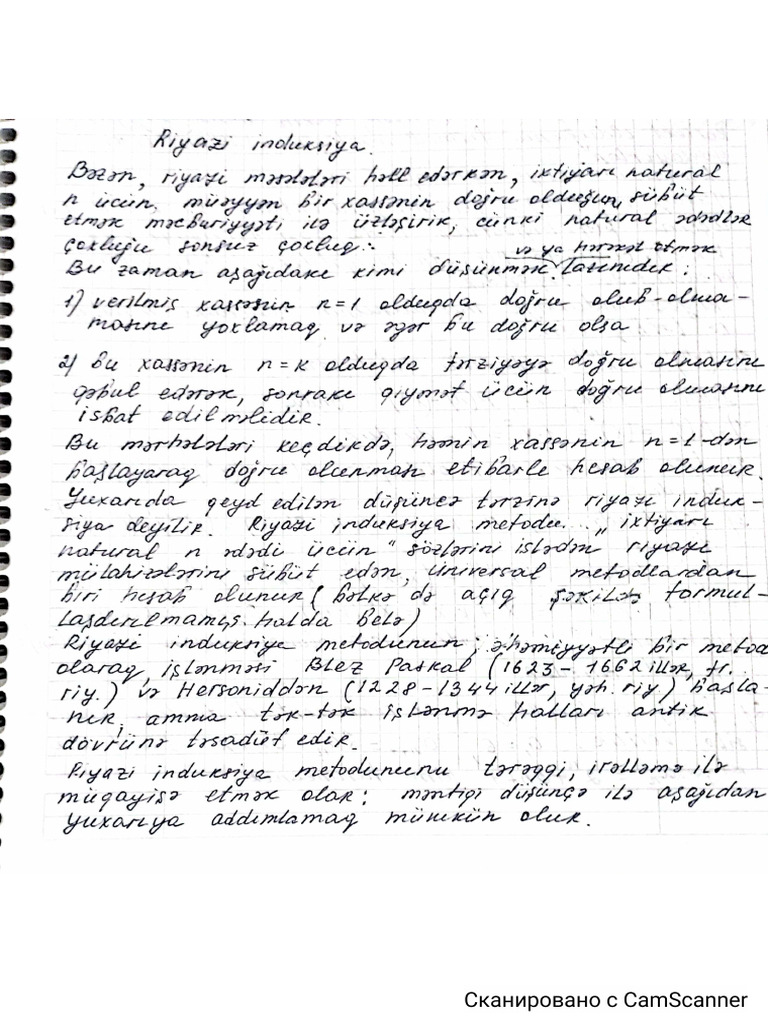 Riyazi induksiya.
Bəzən, riyazi məsələləri həll edərkən, ixtiyarı natural
n üçün, müəyyən bir xassənin doğru olduğunu sübut
etmək məcburiyyəti ilə üzləşirik, çünki natural ədədlər
çoxluğu sonsuz çoxluq.
və ya hərəkət etmək
Bu zaman aşağıdakı kimi düşünmək lazımdır:
1) verilmiş xassənin n=1 olduqda doğru olub-olma-
masını yoxlamaq və əgər bu doğru olsa
2) bu xassənin n=k olduqda fərziyəyə doğru olmasını
qəbul edərək, sonrakı qiymət üçün doğru olmasını
isbat edilməlidir.
Bu mərhələləri keçdikdə, həmin xassənin n=1-dən
başlayaraq doğru olunması etibarlı hesab olunur.
Yuxarıda qeyd edilən düşüncə tərzinə riyazi induk-
siya deyilir. Riyazi induksiya metodu „ixtiyarı
natural n ədədi üçün" sözlərini işlədən riyazi
mülahizələrini sübut edən, universal metodlardan
biri hesab olunur (bəlkə də açıq şəkildə formul-
laşdırılmamış halda belə)
Riyazi induksiya metodunun, əhəmiyyətli bir metod
olaraq, işlənməsi Blez Paskal (1623-1662 illər, fr.
riy.) və Hersoniddən (1228-1344 illər, yəh. riy) başla-
nır, amma tək-tək işlənmə halları antik
dövrünə təsadüf edir.
Riyazi induksiya metodununu tərəqqi, irəlləmə ilə
müqayisə etmək olar: məntiqi düşünçə ilə aşağıdan
yuxarıya addımlamaq mümkün olur.
Сканировано с CamScanner